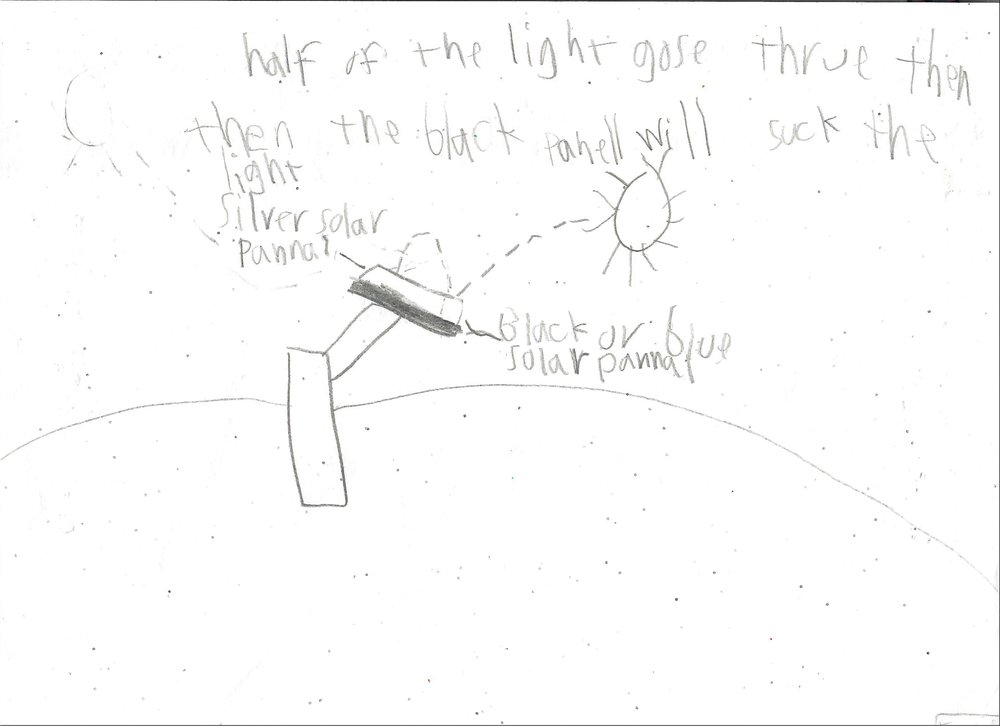 half of the light gose thrue then
then the black panell will suck the
light
silver solar
pannal
Black or blue
solar pannal